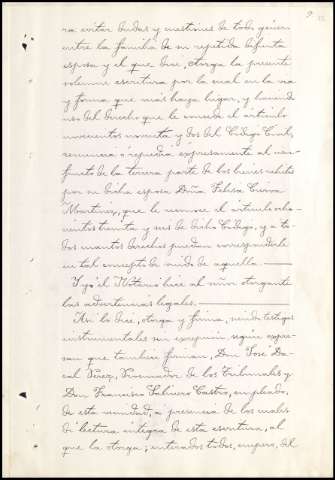 9
ra evitar dudas y cuestiones de todo género
entre la familia de su repetida difunta
esposa y el que dice, otorga la presente
solemne escritura por la cual en la vía
y forma que más haya lugar, y haciendo
uso del derecho que le concede el artículo
novecientos noventa y dos del Código Civil,
renuncia o repudia expresamente al usu-
fructo de la tercera parte de los bienes relictos
por su dicha esposa Doña Felisa
Martínez, que le reconoce el artículo ocho-
cientos treinta y seis de dicho Código, y a to-
dos cuantos derechos puedan corresponderle
en tal concepto de viudo de aquella.
Y yo el Notario hice al señor otorgante
las advertencias legales.
Así lo dice, otorga y firma, siendo testigos
instrumentales sin excepción según expre-
san que también firman, Don José Da-
cal Pérez, Procurador de los Tribunales y
Don Francisco Salinero Castro, empleado,
de esta vecindad, a presencia de los cuales
di lectura íntegra de esta escritura, al
que la otorga; enterados todos, empero, del